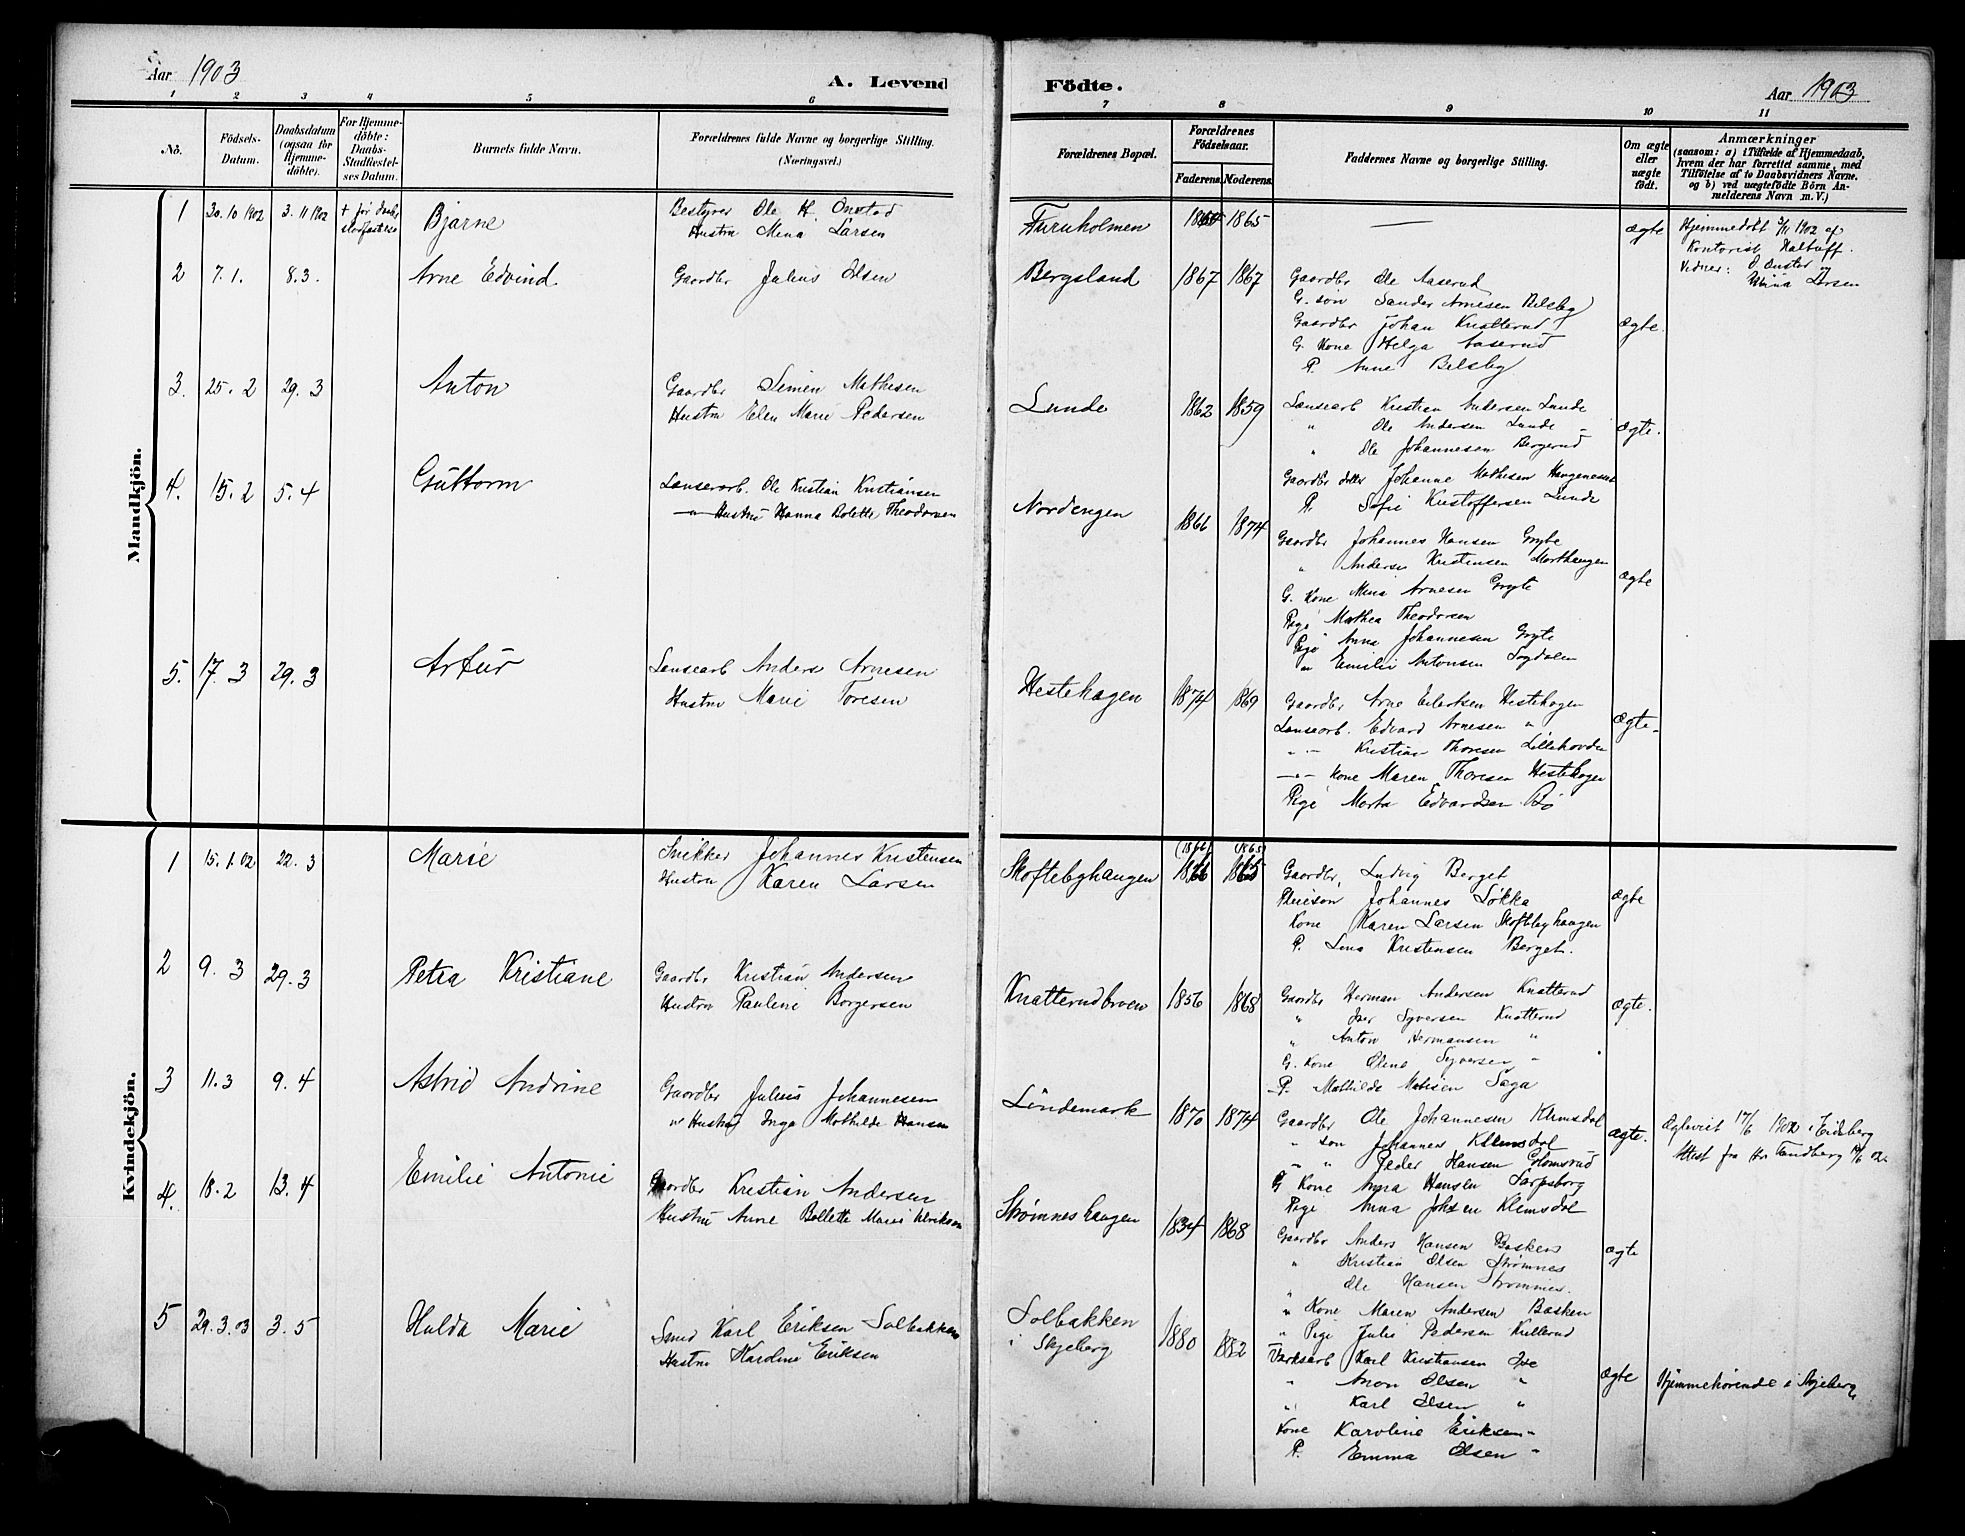 Aar 1903
A. Levend
1 2 3 4 5 6
No.
Födsels-
Datum.
Daabsdatum
(ogsaa for
Hjemme-
döbte).
For Hjemme-
döbte:
Daabs-
Stadfæstel-
ses Datum.
Barnets fulde Navn.
Forældrenes fulde Navne og borgerlige Stilling.
(Næringsvei.)
Mandkjön.
1 30.10 1902 3.11 1902 + før
Bjarne
Bestyrer Ole H. Onstad
Hustru Mina Larsen
2 7.1. 8.3.
Arne Edvind
Gaardbr Julius Olsen
3. 25.2 29.3
Anton
Gaardbr Simen Mathisen
Hustru Elen Marie Pedersen
4. 15.2 5.4
Guttorm
Lausearb. Ole Kristian Kristiansen
— Hustru Hanna Bolette Theodorsen
5. 17.3 29.3
Artur
Lausearb Anders Arnesen
Hustru Marie Toresen
Kvindekjön.
1 15.1.02 22.3
Marie
Snikker Johannes Kristensen
Hustru Karen Larsen
2 9.3 29.3
Petra Kristiane
Gaardbr Kristian Andersen
Hustru Pauline Borgersen
3 11.3 9.4
Astrid Andrine
Gaardbr Julius Johannesen
" Hustru Inga Mathilde Hansen
4. 18.2 13.4
Emilie Antonie
Gaardbr Kristian Andersen
Hustru Anne Bollette Marie Ulriksen
5 29.3.03 3.5
Hulda Marie
Smed Karl Eriksen Solbakken
Hustru Karoline Eriksen
Födte.
Aar 1903
7 8 9 10 11
Forældrenes Bopæl.
Forældrenes
Födselsaar.
Faderens. Moderens.
Faddernes Navne og borgerlige Stilling.
Om ægte
eller
uægte
födt.
Anmærkninger
(saasom: a) i Tilfælde af Hjemmedaab,
hvem der har forrettet samme, med
Tilföielse af to Daabsvidners Navne.
og b) ved uægtefödte Börn An-
melderens Navn m. V.)
Furuholmen 1865 —
ægte
Hjemmedøbt 3/11 1902 af
Kontorist
Vidner: O. Onstad
Mina Larsen
Bergsland 1867 1867
Gaardbr Ole Aaserud
G. søn Sander Arnesen Bilsby
Gaardbr Johan Knatterud
G. Kone Helga Aaserud
P. Anne Bilsby
ægte.
Lunde 1862 1859
Lausearb Kristian Andersen Lunde
" Ole Andersen Lunde
" Ole Johannesen Bergerud
Gaardbr datter Johanne Mathisen
P. Sofie Kristoffersen Lunde
ægte.
Nordengen 1866 1874
Gaardbr Johannes Hansen Gryte
" Anders Kristensen Morthaugen
G. Kone Mina Arnesen Gryte
Pige Mathea Theodorsen
Pige Anna Johannesen Gryte
" Emilie Antonsen Sogdalen
ægte
Hestehagen 1874 1869
Gaardbr Arne Eilertsen Hestehagen
Lausearb. Edvard Arnesen "
— " — Kristian Thoresen Lillehovde
— " — Kone Maren Thoresen Hestehagen
Pige Marta Edvardsen Bø
ægte
(1866) (1865)
Skoftebyhaugen 1866 1865
Gaardbr. Ludvig Berget
Johannes Løkka
Kone Karen Larsen Skoftebyhaugen
P. Lina Kristensen Berget.
ægte
Knatterudbroen 1856 1868
Gaardbr Herman Andersen Knatterud
" Iver Syversen Knatterud
" Anton Hermansen "
G. Kone Oline Syversen "
P. Mathilde Matisen Saga
ægte.
Lindemark 1870 1874
Gaardbr Ole Johannesen Klemsdal
" søn Johannes Klemsdal
" " Peder Hansen Glomsrud
G Kone Anna Hansen Sarpsborg
Pige Anna Johsen Klemsdal
ægte.
Ægteviet 17/6 1902 i Eidsberg
Attest fra Hr. Tandberg 17/6 02.
Strømneshaugen 1834 1868
Gaardbr Anders Hansen Basken
" Kristian Olsen Strømnes
" Ole Hansen Strømnes.
" Kone Maren Andersen Basken
" Pige Julie Pedersen
ægte
Solbakken
i Skjeberg
1880 1882
Værksarb Karl Kristiansen Ise
" Anon Olsen "
" Karl Olsen "
Kone Karoline Eriksen "
P. Emma Olsen "
ægte
Hjemmehørende i Skjeberg